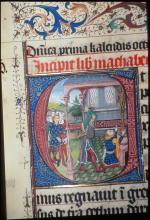 Dnica prima kalendis octo
Incipit lib machabe
E
mus regnauit i gre